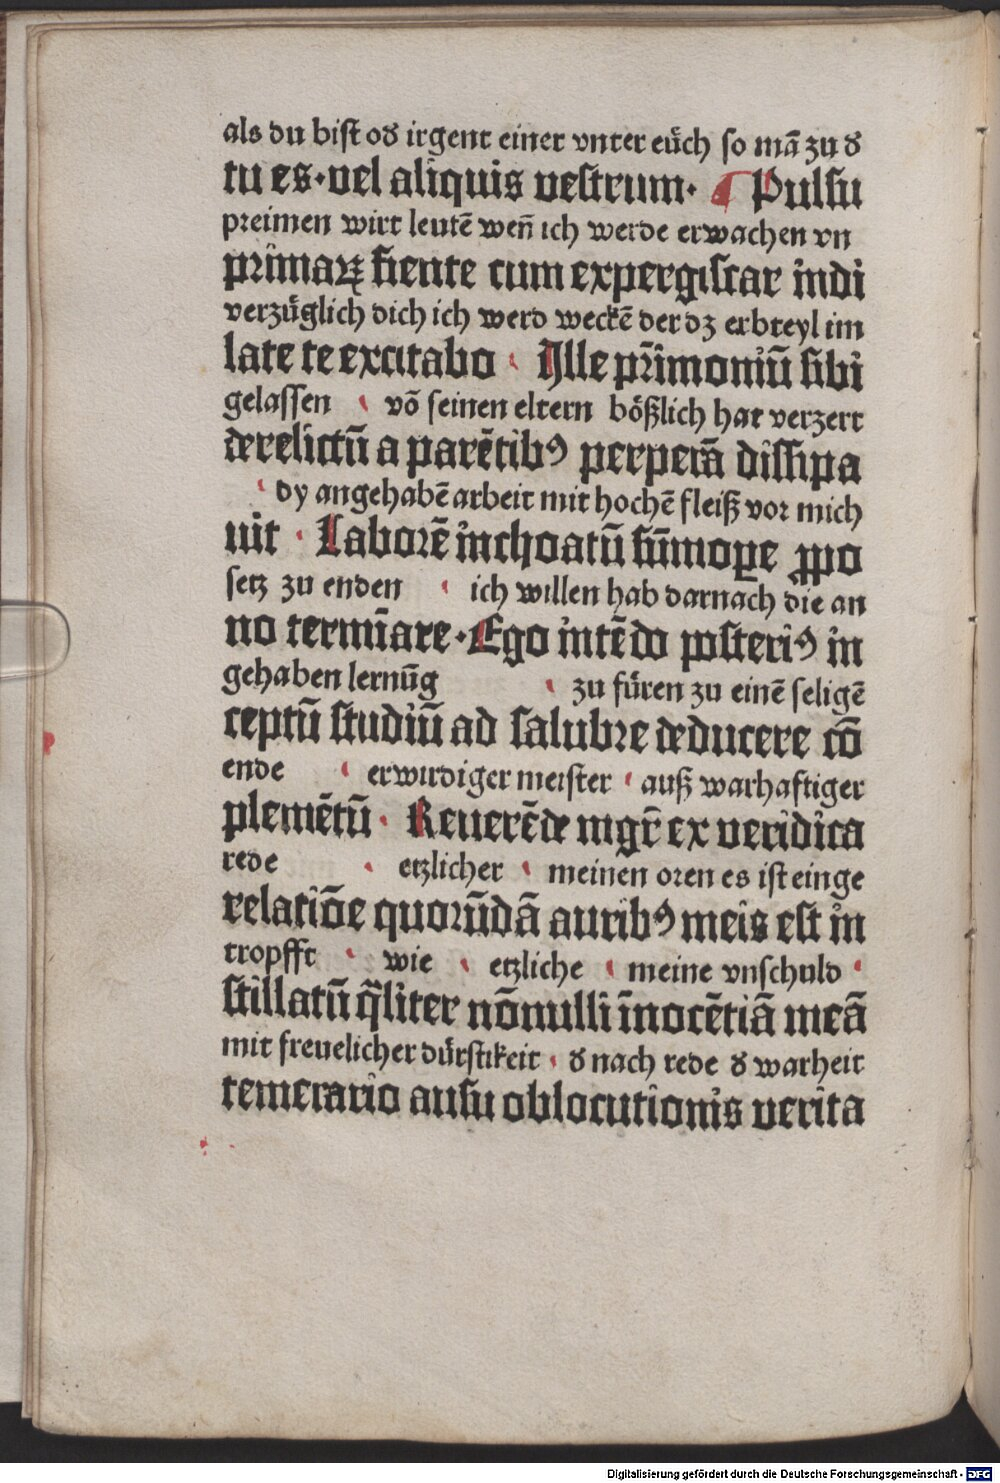 als du bist oď irgent einer vnter eůch so mā zu ď
tu es·vel aliquis vestrum· ¶ Pulsu
preimen wirt leutē wen̄ ich werde erwachen vn
primaꝝ fiente cum expergiscar indi
verzůglich dich ich werd weckē der dz erbteyl im
late te excitabo · Ille pr̄imoniū sibi
gelassen · vō seinen eltern bößlich hat verzert
derelictū a parētibꝰ perperā dissipa
· dy angehabē arbeit mit hochē fleiß vor mich
uit · Laborē inchoatū sūmoꝑe ꝓpo
setz zu enden · ich willen hab darnach die an
no termīare·Ego intēdo posteriꝰ in
gehaben lernūg · zu fůren zu einē seligē
ceptū studiū ad salubre deducere cō
ende · erwirdiger meister · auß warhaftiger
plemētū· Reuerēde mgr̄ ex veridica
rede · etzlicher · meinen oren es ist einge
relatiōe quorūdā auribꝰ meis est in
tropfft · wie · etzliche · meine vnschuld ·
stillatū q̄liter nōnulli īnocētiā meā
mit freuelicher důrstikeit · ď nach rede ď warheit
temerario ausu oblocutionis verita
Digitalisierung gefördert durch die Deutsche Forschungsgemeinschaft - DFG